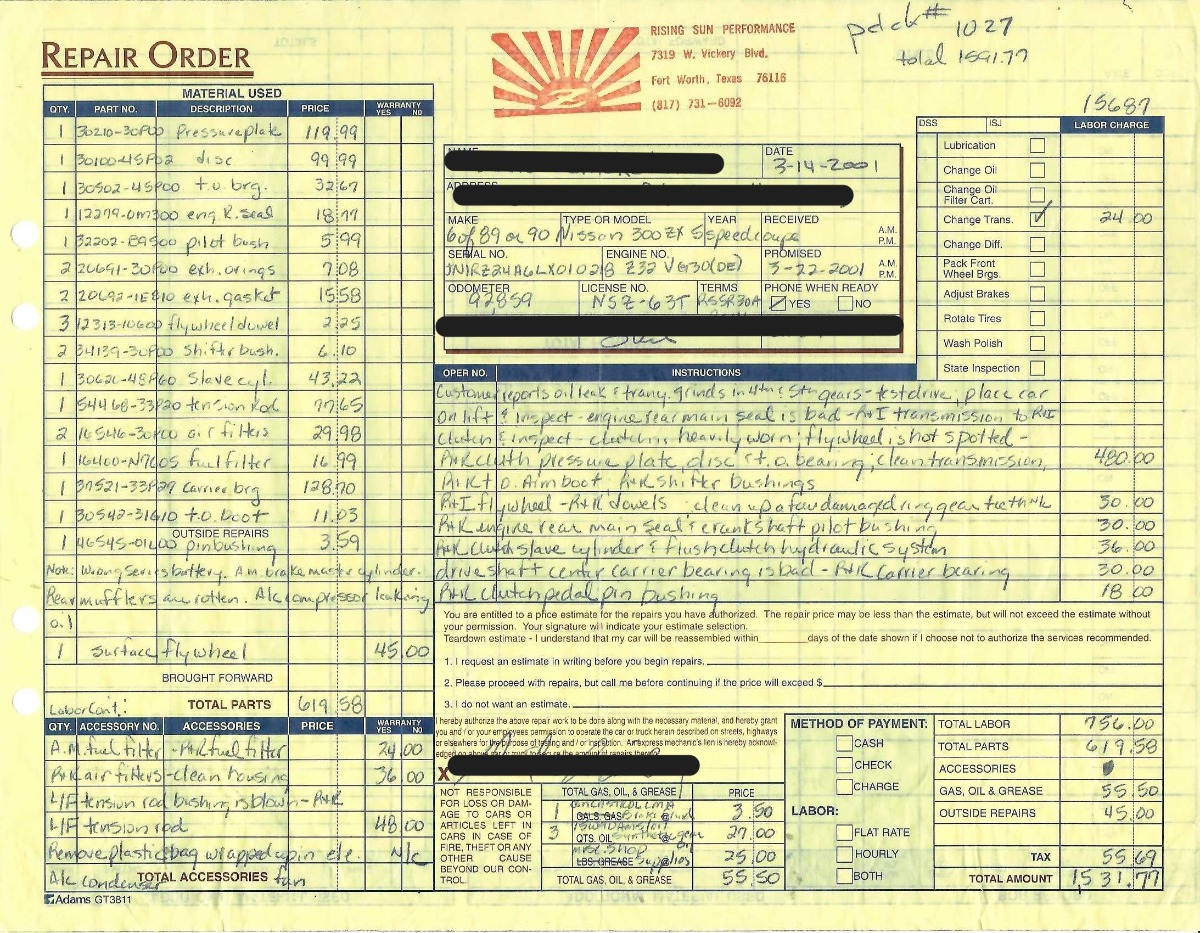 pd ck# 1027
total 1591.77
RISING SUN PERFORMANCE
7319 W. Vickery Blvd.
Fort Worth, Texas 76116
(817) 731-6092
REPAIR ORDER
15687
MATERIAL USED
QTY. PART NO. DESCRIPTION PRICE WARRANTY YES NO
1 30210-30P00 Pressure plate 119.99
1 30100-45P02 disc 99.99
1 30502-45P00 t.o. brg. 32.67
1 12279-0M300 eng R. seal 18.77
1 32202-B9500 pilot bush 5.99
2 20691-30P00 exh. orings 7.08
2 20692-1E810 exh. gasket 15.58
3 12313-10600 flywheel dowel 2.25
2 34139-30P00 Shifter bush. 6.10
1 30620-48P60 Slave cyl. 43.22
1 54468-33P20 tension rod 77.65
2 16546-30P00 air filters 29.98
1 16400-N7605 fuel filter 16.99
1 37521-33P29 Carrier brg 128.70
1 30542-31G10 t.o. boot 11.03
OUTSIDE REPAIRS
1 46545-01L00 pin bushing 3.59
Note: Wrong series battery. A.m. brake master cylinder.
Rear mufflers are rotten. A/c compressor leaking
oil
1 surface flywheel 45.00
BROUGHT FORWARD
Labor Cont: TOTAL PARTS 619.58
QTY. ACCESSORY NO. ACCESSORIES PRICE WARRANTY YES NO
A.M. fuel filter - R+R fuel filter 24.00
R+R air filters - clean housing 36.00
L/F tension rod bushing is blown - R+R
L/F tension rod 48.00
Remove plastic bag wrapped up in ele. N/c
A/c condenser fan
TOTAL ACCESSORIES
Adams GT3811
NAME
DATE
3-14-2001
ADDRESS
MAKE TYPE OR MODEL YEAR RECEIVED A.M. P.M.
6 of 89 or 90 Nissan 300ZX 5 speed coupe
SERIAL NO. ENGINE NO. PROMISED A.M. P.M.
JN1RZ24A6LX010218 Z32 VG30(DE) 3-22-2001
ODOMETER LICENSE NO. TERMS PHONE WHEN READY
92,859 NSZ-63T RS5R30A YES NO
DSS ISJ LABOR CHARGE
Lubrication
Change Oil
Change Oil Filter Cart.
Change Trans. ✓ 24.00
Change Diff.
Pack Front Wheel Brgs.
Adjust Brakes
Rotate Tires
Wash Polish
State Inspection
OPER NO. INSTRUCTIONS
Customer reports oil leak & trany. grinds in 4th & 5th gears - test drive; place car
on lift & inspect - engine rear main seal is bad - R+I transmission to R+I
clutch & inspect - clutch is heavily worn; flywheel is hot spotted -
R+R cluth pressure plate, disc & t.o. bearing; clean transmission, 480.00
R+R t.o. Arm boot; R+R Shifter bushings
R+I flywheel - R+R dowels; clean up a few damaged ring gear teeth N/c 30.00
R+R engine rear main seal & crankshaft pilot bushing 30.00
R+R Clutch slave cylinder & flush clutch hydraulic system 36.00
driveshaft center carrier bearing is bad - R+R Carrier bearing 30.00
R+R clutch pedal pin bushing 18.00
You are entitled to a price estimate for the repairs you have authorized. The repair price may be less than the estimate, but will not exceed the estimate without
your permission. Your signature will indicate your estimate selection.
Teardown estimate - I understand that my car will be reassembled within ______ days of the date shown if I choose not to authorize the services recommended.
1. I request an estimate in writing before you begin repairs.
2. Please proceed with repairs, but call me before continuing if the price will exceed $
3. I do not want an estimate.
I hereby authorize the above repair work to be done along with the necessary material, and hereby grant
you and / or your employees permission to operate the car or truck herein described on streets, highways
or elsewhere for the purpose of testing and / or inspection. An express mechanic's lien is hereby acknowl-
edged on above car or truck to secure the amount of repairs thereto.
X
NOT RESPONSIBLE
FOR LOSS OR DAM-
AGE TO CARS OR
ARTICLES LEFT IN
CARS IN CASE OF
FIRE, THEFT OR ANY
OTHER CAUSE
BEYOND OUR CON-
TROL.
TOTAL GAS, OIL, & GREASE PRICE
1 CASTROL LMA
GALS. GAS Brake fluid @ 3.50
3
QTS. OIL Synthetic gear @ 27.00
misc. shop
LBS. GREASE Supplies @ 25.00
TOTAL GAS, OIL, & GREASE 55.50
METHOD OF PAYMENT:
CASH
CHECK
CHARGE
LABOR:
FLAT RATE
HOURLY
BOTH
TOTAL LABOR 756.00
TOTAL PARTS 619.58
ACCESSORIES
GAS, OIL, & GREASE 55.50
OUTSIDE REPAIRS 45.00
TAX 55.69
TOTAL AMOUNT 1531.77